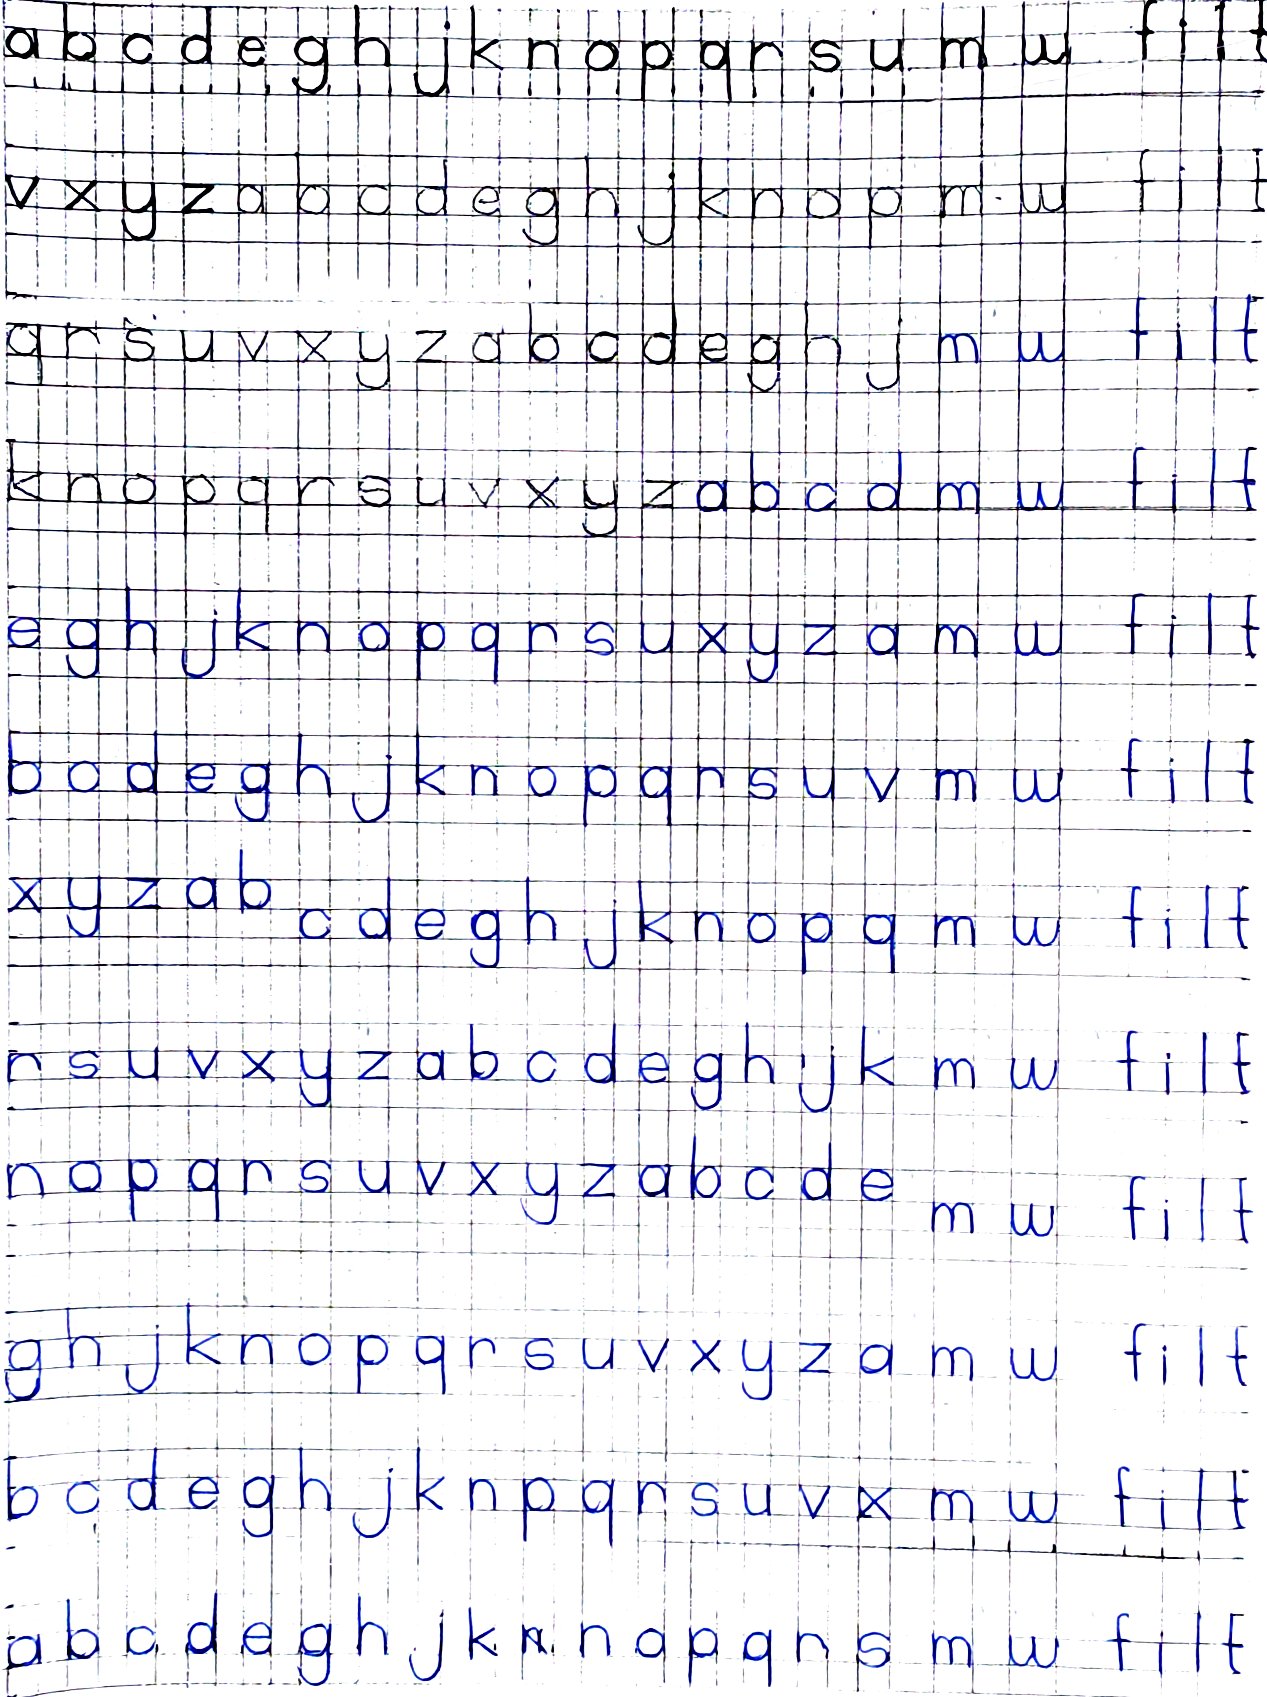 a b c d e g h j k n o p q r s u m w f i l t
v x y z a b c d e g h j k n o p m w f i l t
q r s u v x y z a b c d e g h j m w f i l t
k n o p q r s u v x y z a b c d m w f i l t
e g h j k n o p q r s u x y z a m w f i l t
b c d e g h j k n o p q r s u v m w f i l t
x y z a b c d e g h j k n o p q m w f i l t
r s u v x y z a b c d e g h j k m w f i l t
n o p q r s u v x y z a b c d e m w f i l t
g h j k n o p q r s u v x y z a m w f i l t
b c d e g h j k n p q r s u v x m w f i l t
a b c d e g h j k n n o p q r s m w f i l t